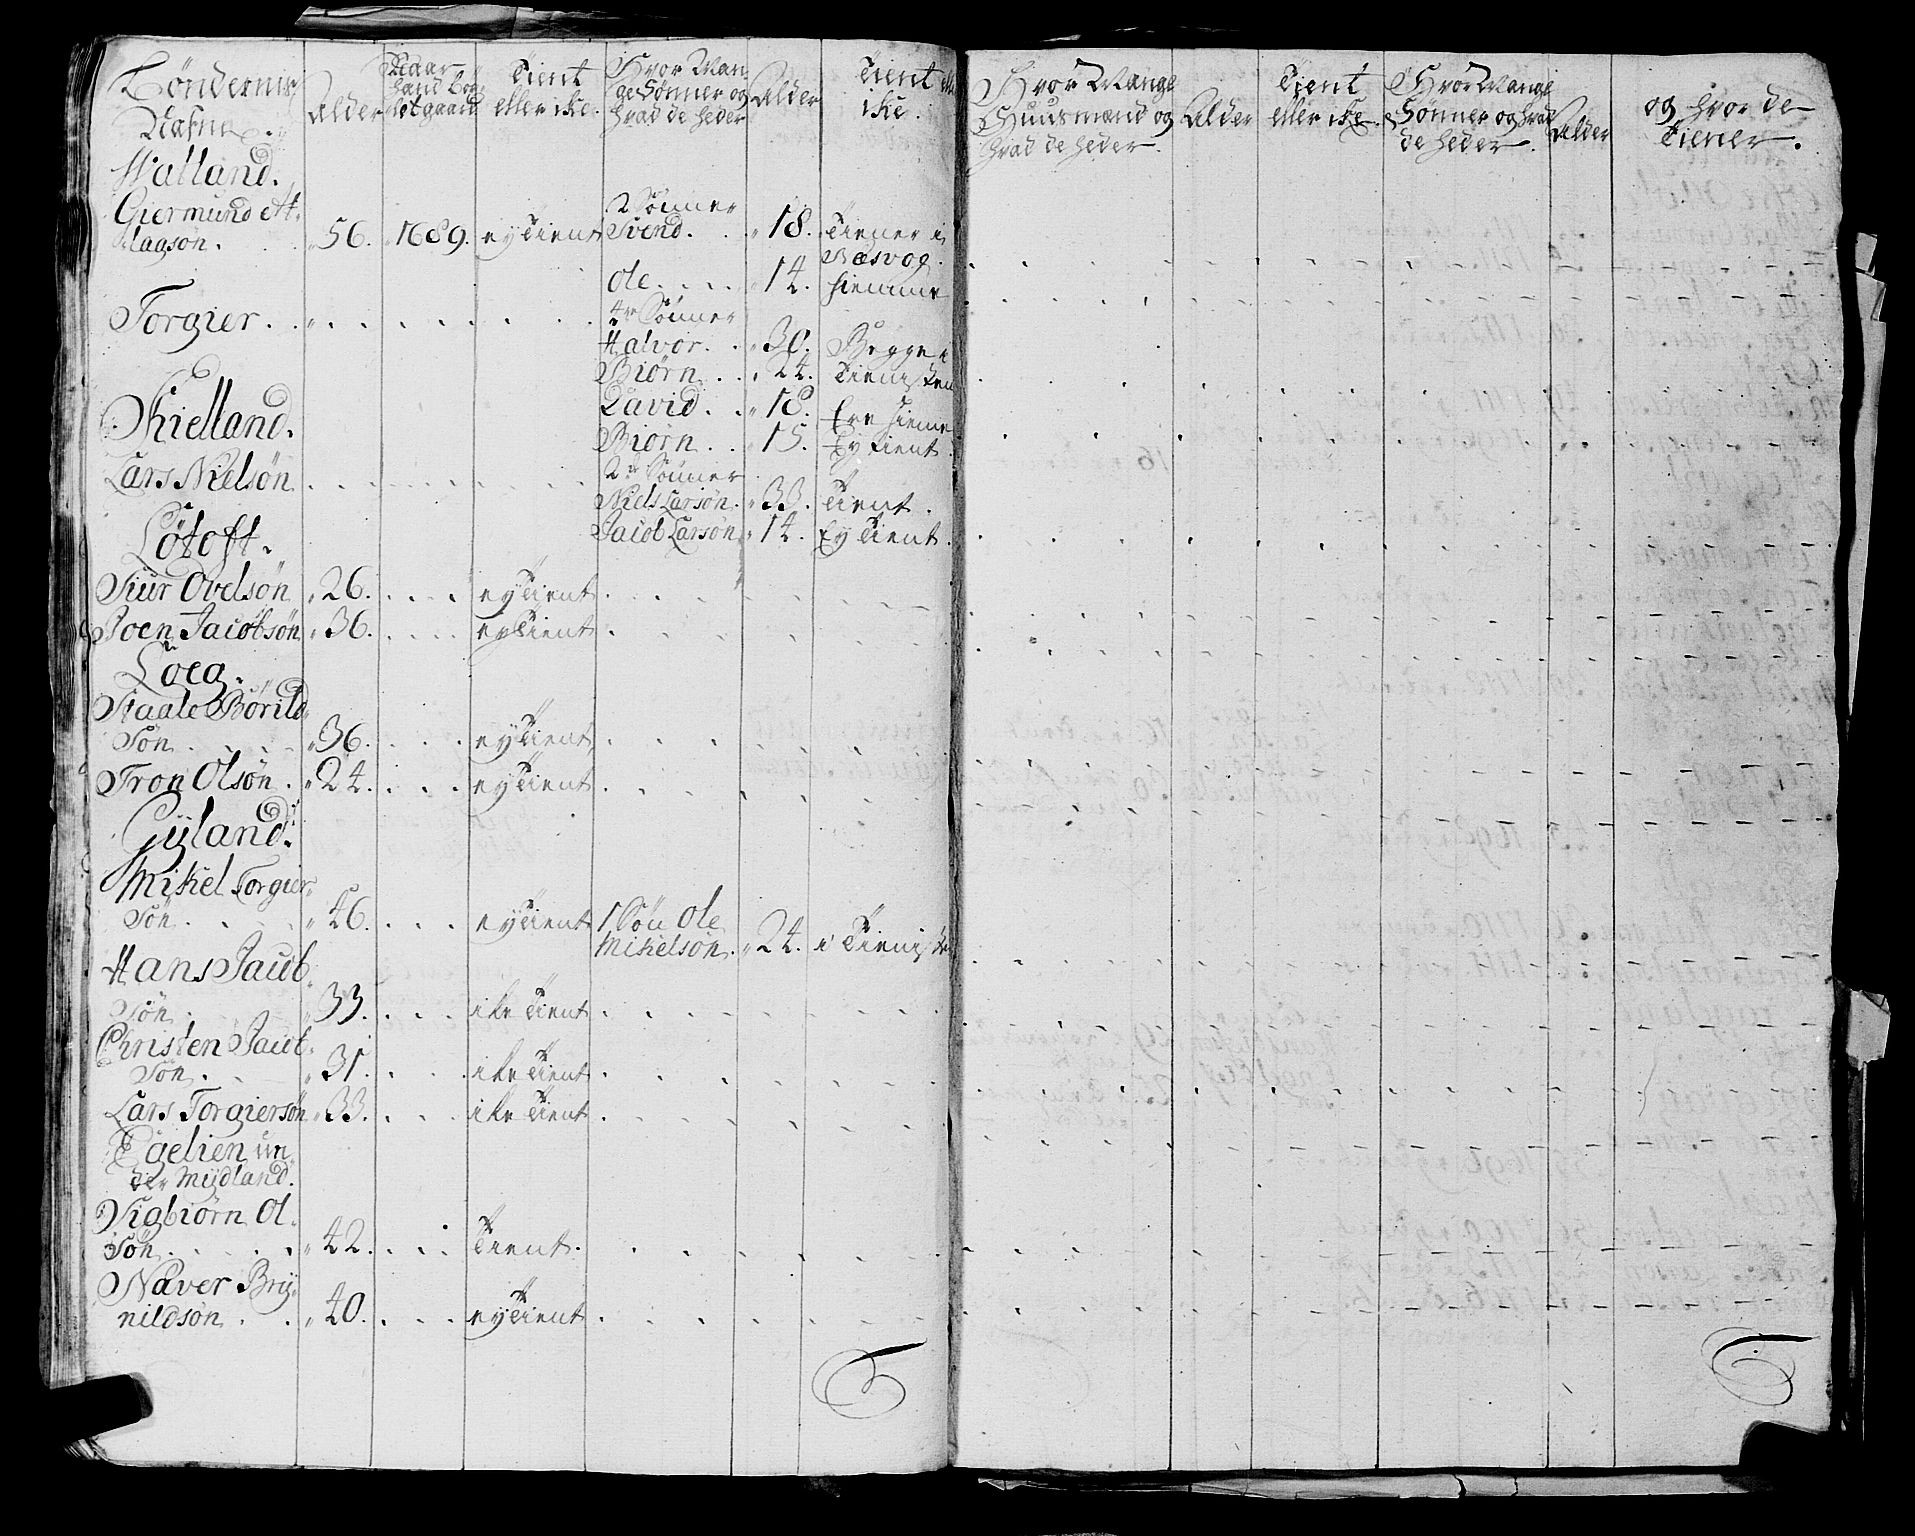 Bøndernis
Nafne.
Alder
Naar
hand Bog-
set gaard
Tient
eller ike.
Hvor Man-
ge Sønner og
hvad de heder
Alder
Tient ell
ike.
Hvor Mange
Huusmænd og
hvad de heder.
Alder
Tient
eller ike.
Hvor Mange
Sønner og hvad
de heder.
Alder
og hvor de
Tiener.
Walland.
Giermund
lagsøn. 56. 1689. ey Tient
2 Sønner
Svend. 18. Tiener i
Ole. 14. hiemme
Torgier.
4re Sønner
Halvor. 30. Begge i
Biørn. 24. Tienisten
Skielland.
David. 18. Ere hieme
Biørn. 15. Ey tient.
Lars Nielsøn
2de Sønner
Niels Larsøn. 33. Tient.
Jacob Larsøn. 14. Ey Tient.
Løtoft.
Siur Ovelsøn 26. ey Tient
Joen Jacobsøn 36. ey Tient
Loeg.
Staale Børild
Søn. 36. ey Tient
Tron Olsøn. 24. ey Tient
Gyland.
Mikel Torgier
Søn. 46. ey Tient 1 Søn Ole
Mikelsøn. 24. i Tieniste
Hans Jacob
Søn. 33. ike Tient
Christen Jacob
Søn. 31. ike Tient
Lars Torgiersøn 33. ike Tient
Egelien un
der Mydland.
Sigbiørn Ol
Søn. 42. Tient.
Naver Bry
nildsøn. 40. ey Tient